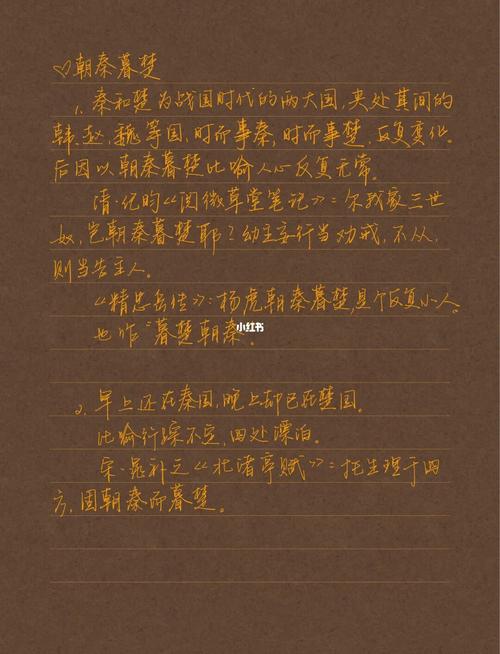 ♡朝秦暮楚
1、秦和楚为战国时代的两大国，夹处其间的
韩、赵、魏等国，时而事秦，时而事楚，反复变化。
后因以朝秦暮楚比喻人心反复无常。
清·纪昀《阅微草堂笔记》：尔我家三世
奴，岂朝秦暮楚耶？幼主妄行当劝戒，不从，
则当告主人。
《精忠岳传》：杨虎朝秦暮楚，是个反复小人。
也作“暮楚朝秦”。
小红书
2、早上还在秦国，晚上却已在楚国。
比喻行踪不定，四处漂泊。
宋·晁补之《北渚亭赋》：托生理于四
方，固朝秦而暮楚。